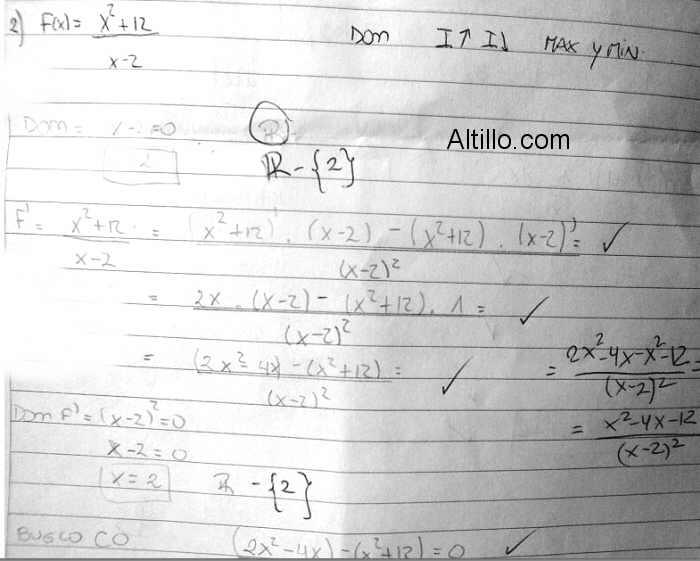 2) F(x) = x²+12 / x-2
Dom I↑ I↓ MAX y MIN.
Dom = x-2=0 R
Altillo.com
2 R-{2}
F' = x²+12 / x-2 = (x²+12)' . (x-2) - (x²+12) . (x-2)' / (x-2)² = ✓
= 2x . (x-2) - (x²+12) . 1 / (x-2)² = ✓
= (2x²-4x) - (x²+12) / (x-2)² = ✓ = 2x²-4x-x²-12 / (x-2)² =
= x²-4x-12 / (x-2)²
Dom F' = (x-2)² = 0
x-2=0
x=2 R -{2}
BUSCO CO (2x²-4x)-(x²+12)=0 ✓